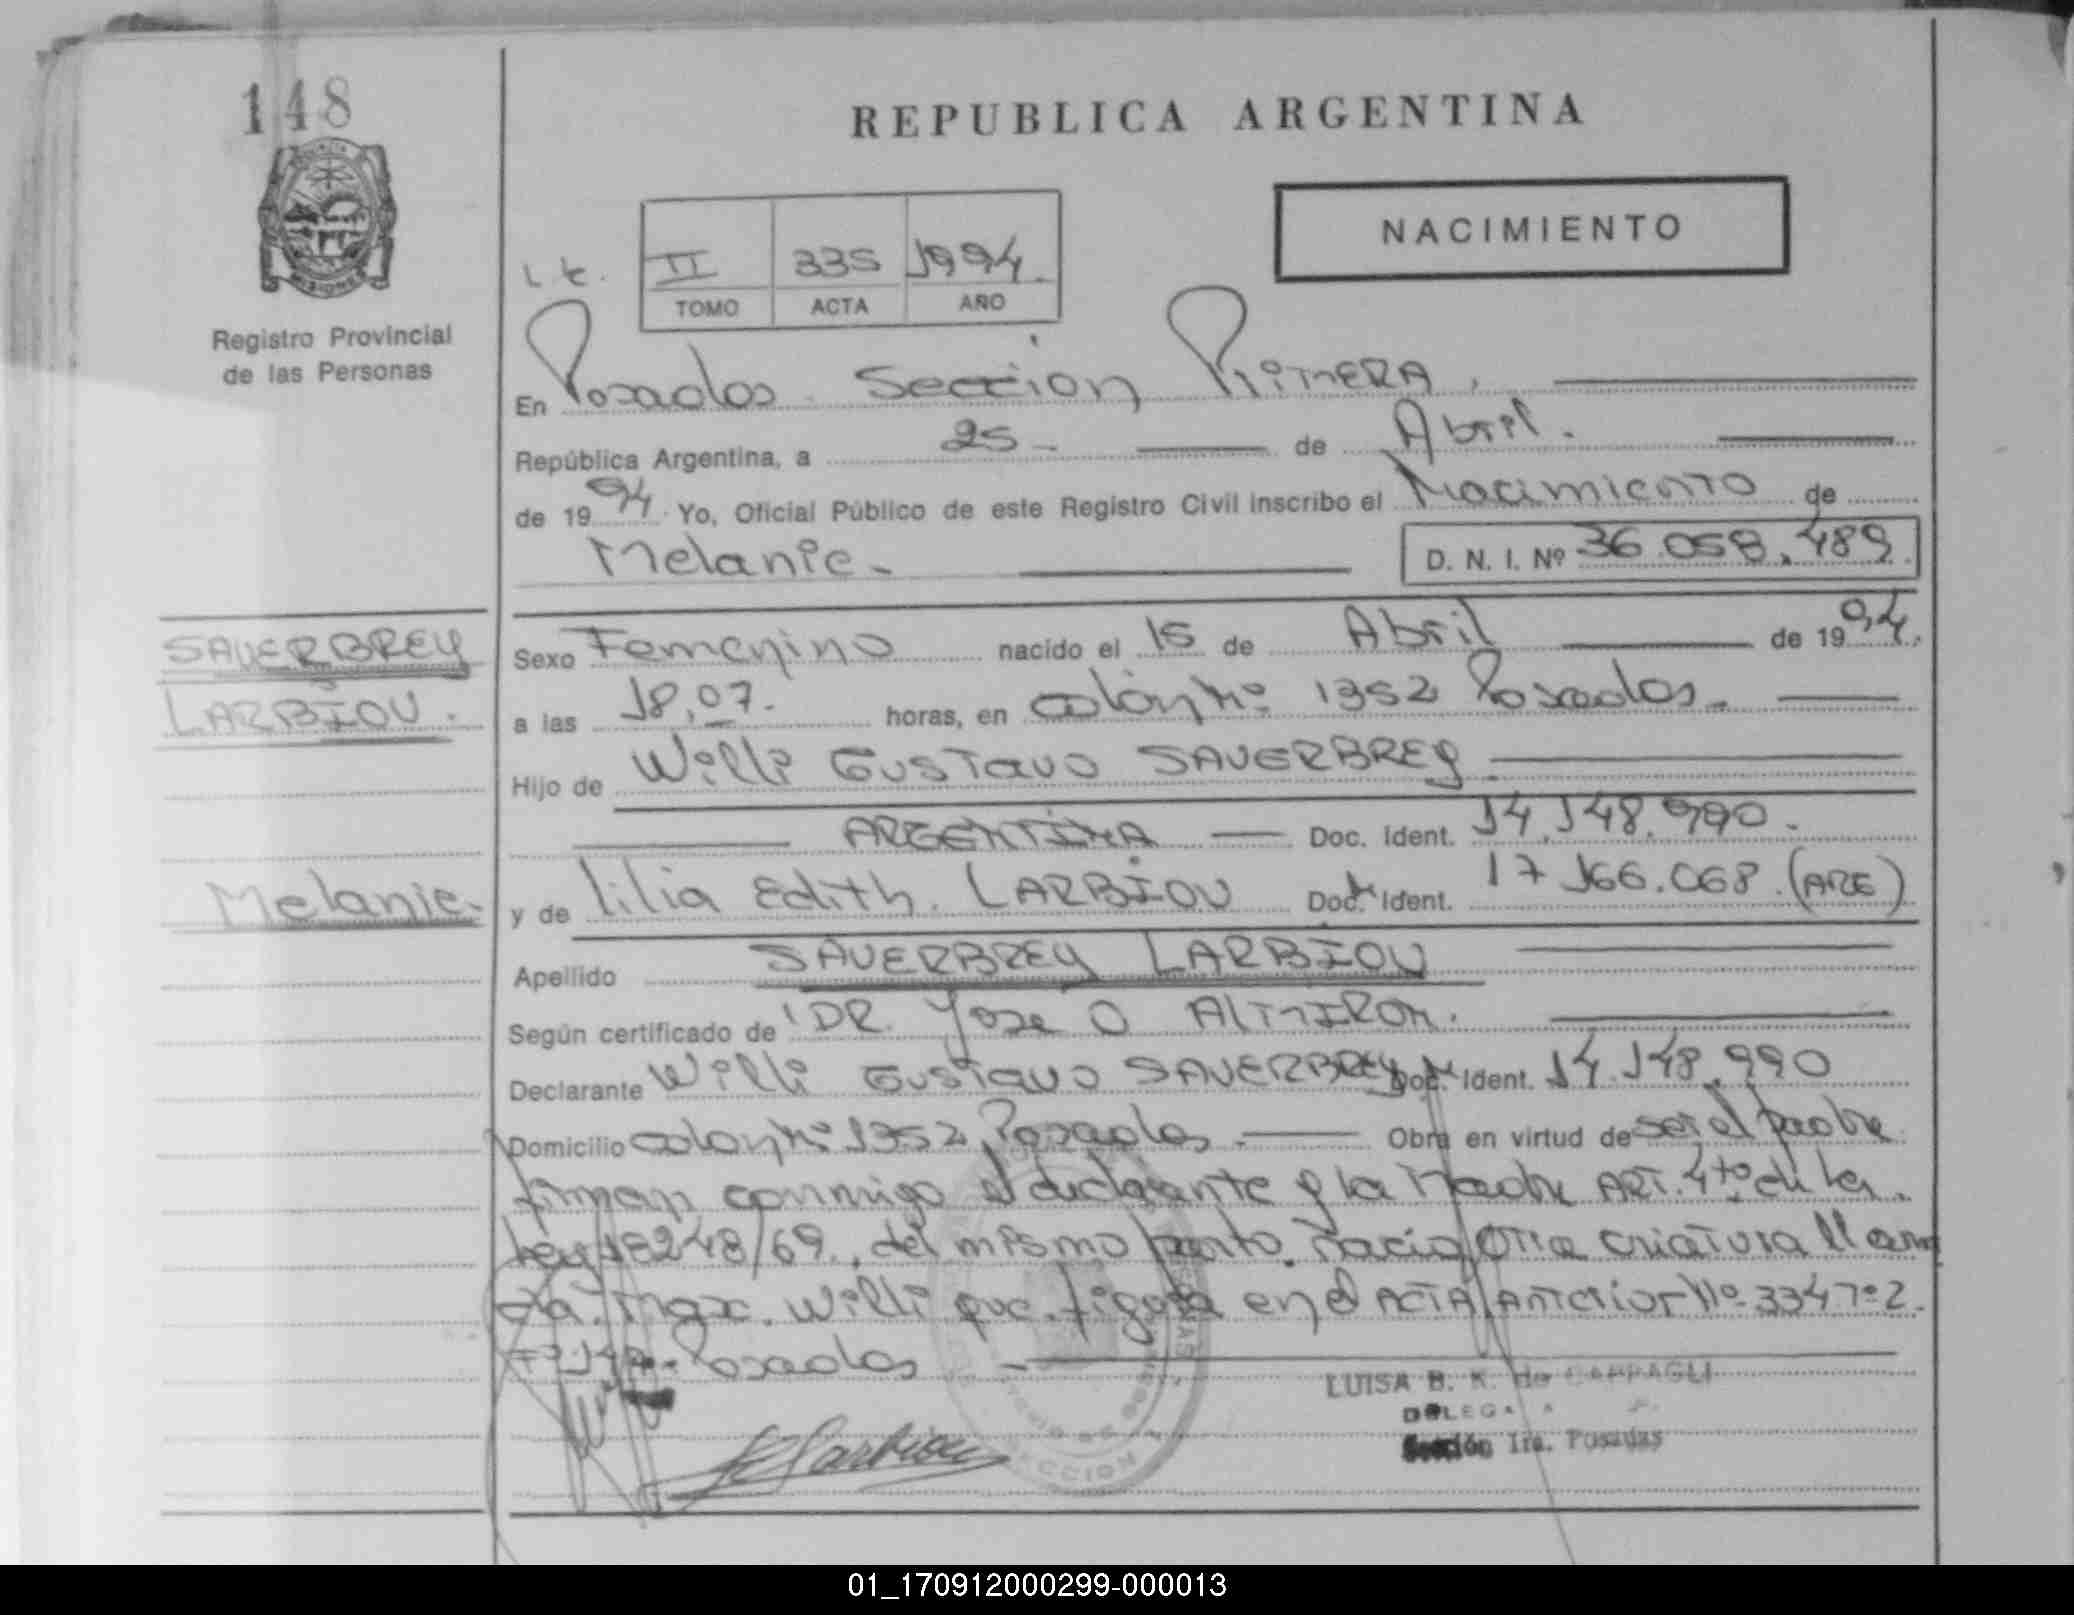 148
REPUBLICA ARGENTINA
NACIMIENTO
II 335 1994.
TOMO ACTA AÑO
MISIONES
Registro Provincial
de las Personas
En Posadas Sección PRIMERA.
República Argentina, a 25 de Abril.
de 1994 Yo, Oficial Público de este Registro Civil inscribo el Nacimiento de
Melanie.
D. N. I. Nº 36.058.489.
SAUERBREY
LARBIOU.
Melanie.
Sexo Femenino nacido el 15 de Abril de 1994.
a las 18,07. horas, en Colón Nº 1352 Posadas.
Hijo de Willi Gustavo SAUERBREY
ARGENTINA Doc. Ident. 14.148.990.
y de Lilia Edith. LARBIOU Doc. Ident. 17.166.068.(ARG)
Apellido SAUERBREY LARBIOU
Según certificado de DR. Jose O ALMIRON.
Declarante Willi Gustavo SAUERBREY Doc. Ident. 14.148.990
Domicilio Colon Nº 1352 Posadas. Obra en virtud de ser el padre
firman conmigo el declarante y la Madre ART. 4to de la
Ley 18248/69. del mismo parto nacio otra criatura llama
da. Max. Willi que figura en el ACTA Anterior Nº 334 Tº 2.
Fº 147. Posadas
LUISA B. K. de CAPPAGLI
DELEGADA
Sección 1ra. Posadas
Larbiou
SECCION 1
01_170912000299-000013